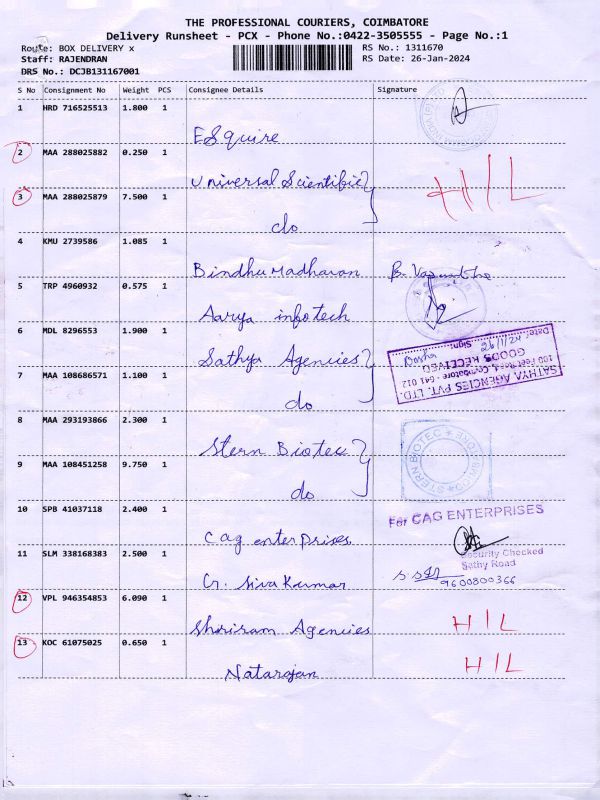 THE PROFESSIONAL COURIERS, COIMBATORE
Delivery Runsheet - PCX - Phone No.:0422-3505555 - Page No.:1
Route: BOX DELIVERY x
RS No.: 1311670
Staff: RAJENDRAN
RS Date: 26-Jan-2024
DRS No.: DCJB131167001
S No Consignment No Weight PCS Consignee Details Signature
1 HRD 716525513 1.800 1
ESquire
2 MAA 288025882 0.250 1
Universal Scientific
HIL
3 MAA 288025879 7.500 1
do
4 KMU 2739586 1.085 1
Bindhu Madhavan
5 TRP 4960932 0.575 1
Aarya infotech
6 MDL 8296553 1.900 1
Sathya Agencies
SATHYA AGENCIES PVT. LTD.
100 Feet Road, Coimbatore - 641 012
GOODS RECEIVED
Date: 26/1/24 Sign:
7 MAA 108686571 1.100 1
do
8 MAA 293193866 2.300 1
Stern Biotec
STERN BIOTEC
9 MAA 108451258 9.750 1
do
10 SPB 41037118 2.400 1
Cag enterprises
For CAG ENTERPRISES
Security Checked
Sathy Road
11 SLM 338168383 2.500 1
Cr. Siva Kumar
9600800366
12 VPL 946354853 6.090 1
Shriram Agencies
HIL
13 KOC 61075025 0.650 1
Natarajan
HIL